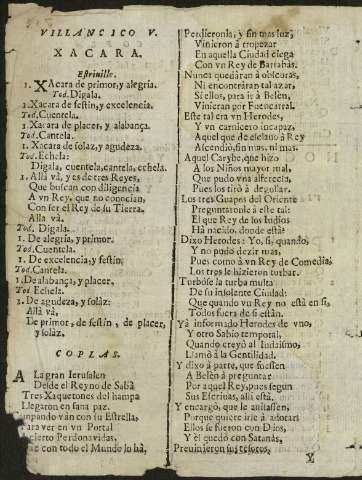 VILLANCICO V.
XACARA.
Estrivillo.
1. XAcara de primor, y alegria.
Tod. Digala.
1. Xacara de festin, y excelencia.
Tod. Cuentela.
1 Xacara de placer, y alabança.
Tod. Cantela.
1. Xacara de solaz, y agudeza.
Tod. Echela:
Digala, cuentela, cantela, echela.
1. Allà và, y es de tres Reyes,
Que buscan con diligencia
A vn Rey, que no conocian,
Con ser el Rey de su Tierra.
Alla và.
Tod. Digala.
1. De alegria, y primor.
Tod. Cuentela.
1. De excelencia, y festin,
Tod. Cantela.
1. De alabança, y placer,
Tod. Echela.
1. De agudeza, y solàz:
Allà và,
De primor, de festin, de placer,
y solàz.
COPLAS.
A La gran Jerusalen
Desde el Reyno de Sabà
Tres Xaquetones del hampa
Llegaron en sana paz.
ampando vàn con su Estrella,
ara ver en vn Portal
cierto Perdonavidas,
ue con todo el Mundo lo hà,
Perdieronla, y sin mas luz,
Vinieron à tropezar
En aquella Ciudad ciega
Con vn Rey de Barrabàs.
Nunca quedàran à obscuras,
Ni encontràran tal azar,
Si ellos, para ir à Belèn,
Vinieran por Fuencarral.
Este tal era vn Herodes,
Y vn carnicero incapaz,
Aquel que de esclavo à Rey
Ascendiò, sin mas, ni mas.
Aquel Carybe, que hizo
A los Niños mayor mal,
Que pudo vna alferecia,
Pues los tirò à degollar.
Los tres Guapos del Oriente
Preguntaronle à este tal:
El que Rey de los Iudios
Ha nacido, donde està?
Dixo Herodes: Yo, si, quando,
Y no pudo dezir mas,
Pues como à vn Rey de Comedia,
Los tres le hizieron turbar.
Turbòse la turba multa
De su insolente Ciudad:
Que quando vn Rey no està en sì,
Todos fuera de sì estàn.
Yà informado Herodes de vno,
Y otro Sabio temporal,
Quando creyò al Iudaismo,
Llamò à la Gentilidad.
Y dixo à parte, que fuessen
A Belèn à preguntar
Por aquel Rey, pues segun
Sus Escrivas, allì està.
Y encargò, que le avisassen,
Porque quiere irle à adorar:
Ellos se fueron con Dios,
Y èl quedò con Satanàs,
Previnieron sus tesoros,
Y